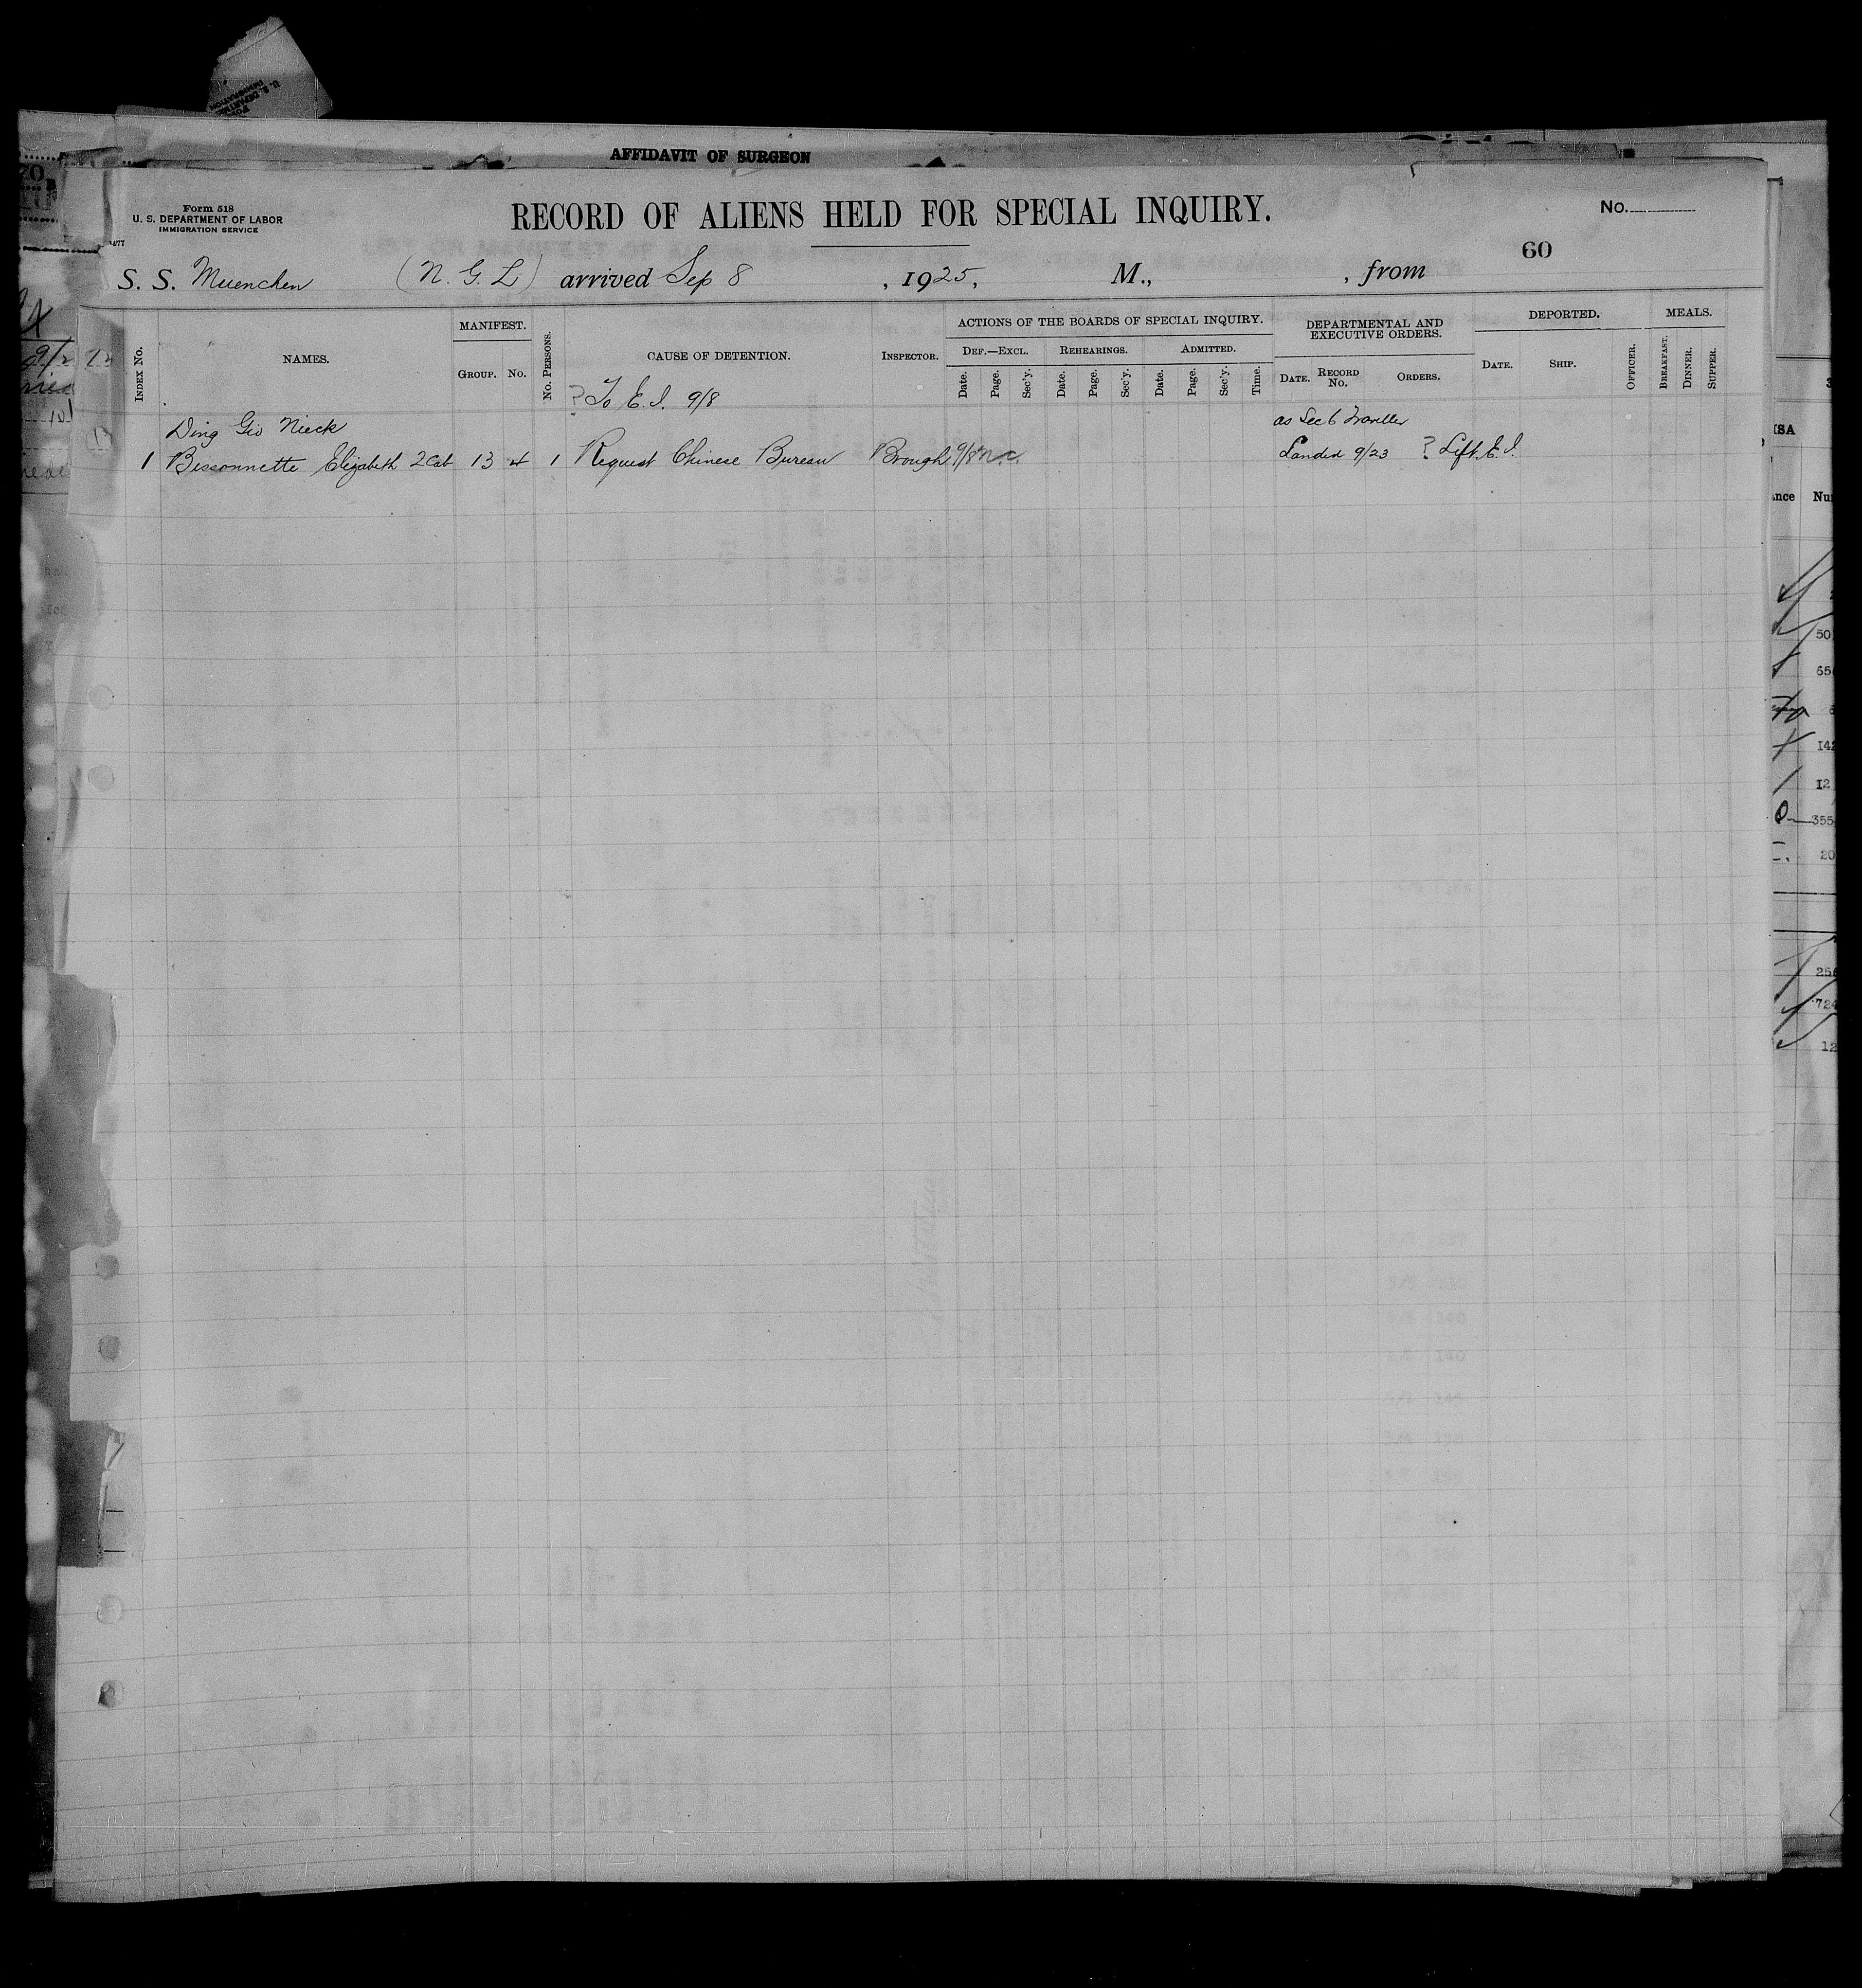 AFFIDAVIT OF SURGEON
Form 518
U. S. DEPARTMENT OF LABOR
IMMIGRATION SERVICE
RECORD OF ALIENS HELD FOR SPECIAL INQUIRY.
No.
60
S. S. Muenchen (N. G. L) arrived Sep 8, 1925, M., , from
INDEX No.
NAMES.
MANIFEST.
GROUP. No.
No. PERSONS.
CAUSE OF DETENTION.
INSPECTOR.
ACTIONS OF THE BOARDS OF SPECIAL INQUIRY.
DEF.—EXCL. REHEARINGS. ADMITTED.
Date. Page. Sec'y. Date. Page. Sec'y. Date. Page. Sec'y. Time.
DEPARTMENTAL AND EXECUTIVE ORDERS.
DATE. RECORD No. ORDERS.
DEPORTED.
DATE. SHIP.
OFFICER.
MEALS.
BREAKFAST. DINNER. SUPPER.
? To E. I. 9/8
Ding Gio Nieck as Sec 6 Traveller
1 Bissonnette Elizabeth 2 Cab 13 4 1 Request Chinese Bureau Brough 9/8 Landed 9/23 ? Left E. I.